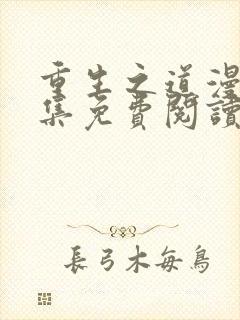 重生之道漫
集免費閱讀
長弓木每鳥